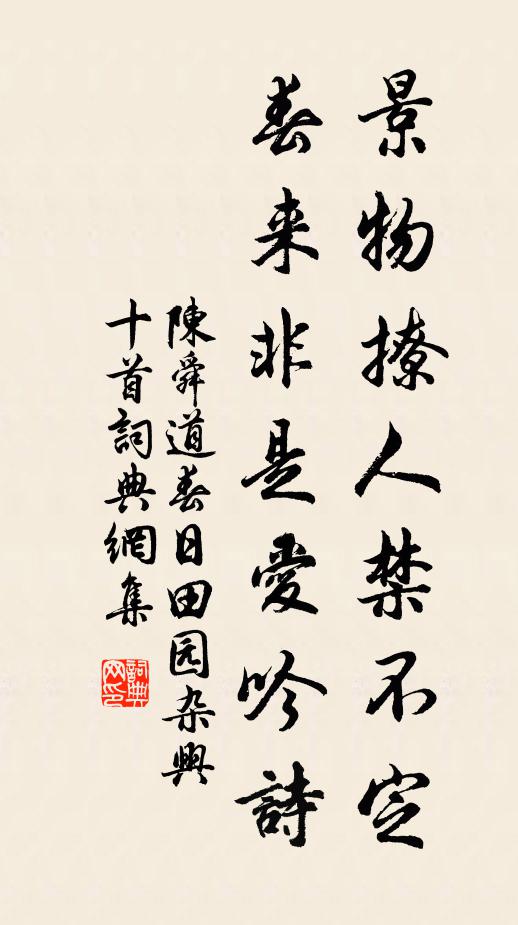 景物撩人禁不定
春来非是愛吟詩
陳舜道春日田园杂興
十首詞典網集
詞典网印